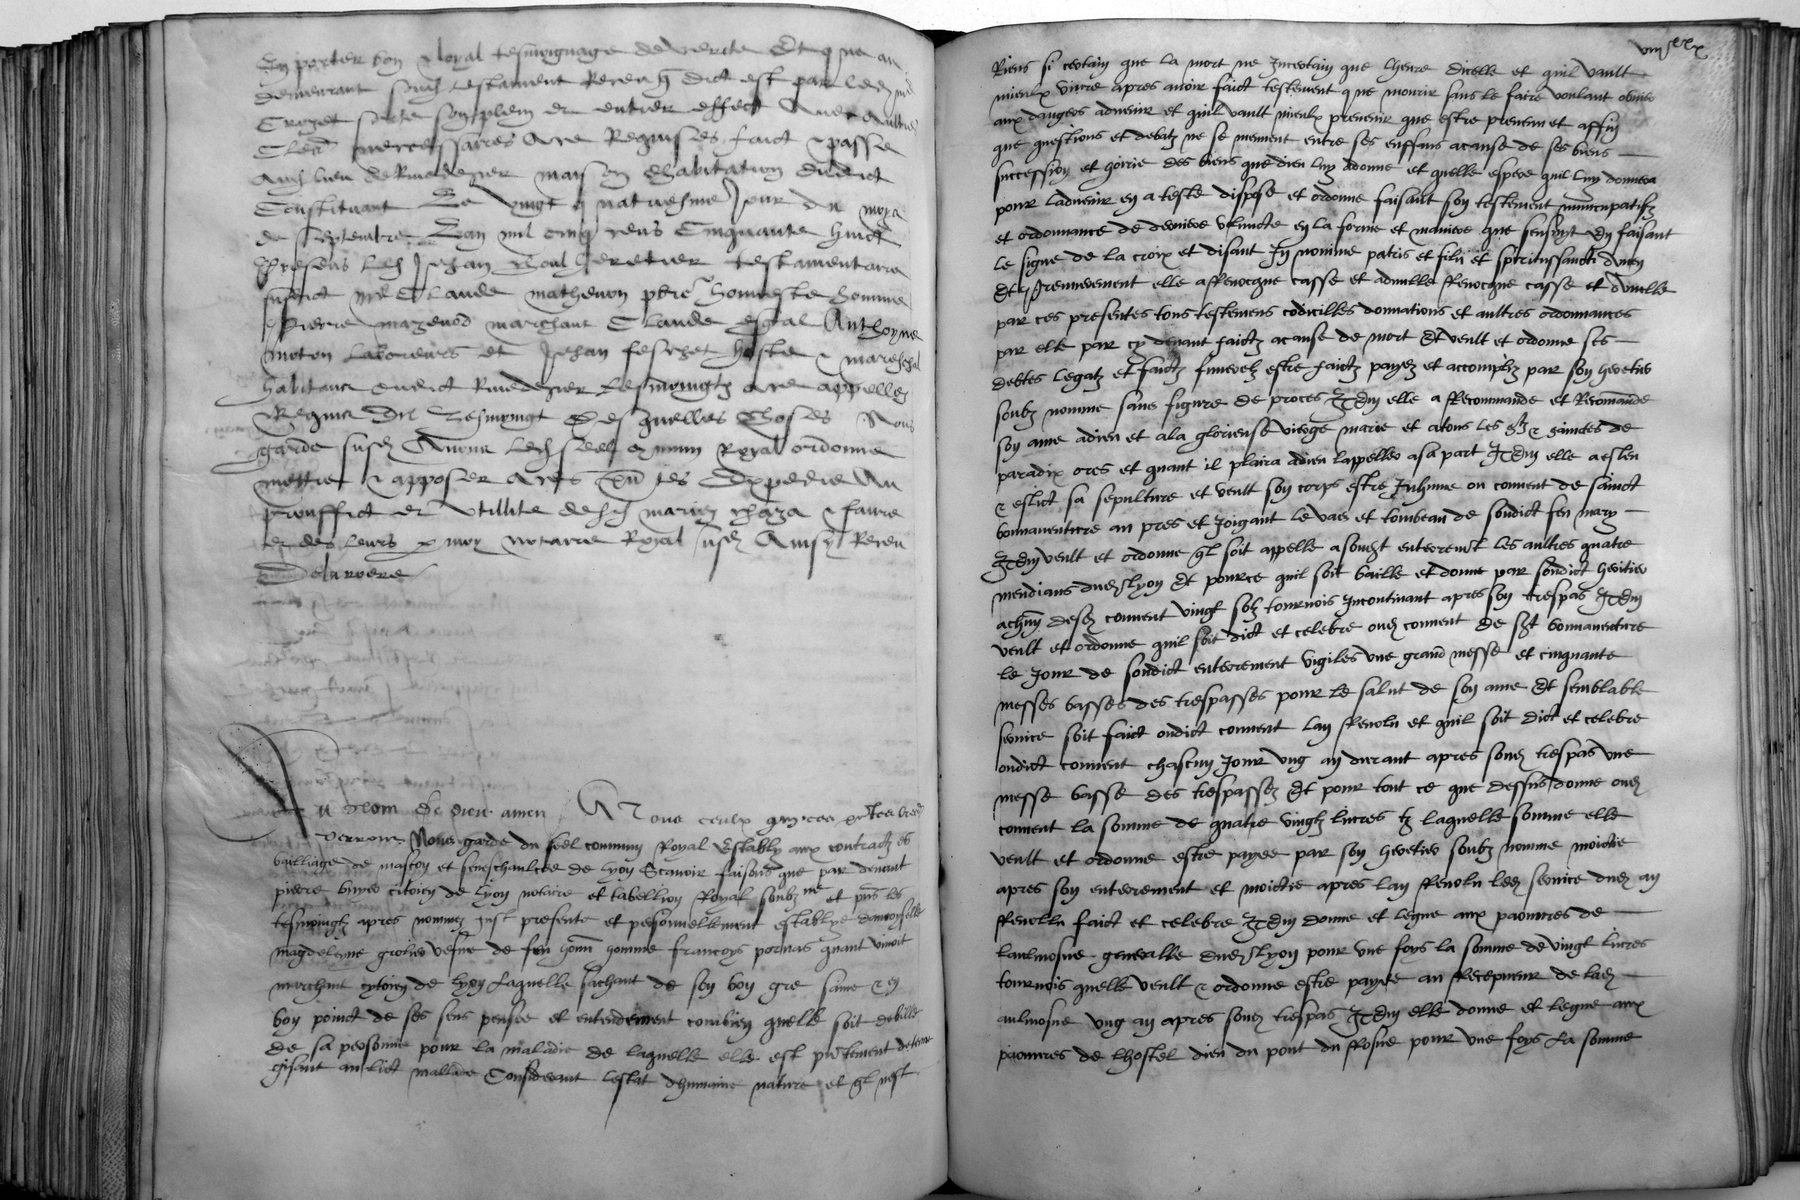 En porter bon & loyal tesmoignage de verite Et que au
demeurant sondit testament Receu q̃ dict est par ledz me
Crozet sorte son plein et entier effect Avec aultres
Clẽs neccessaires A ce Requises faict & passe
Audz lieu de Rivedegier maison dhabitation dudict
Constituant Le vingt quatriesme Jour du moys
de septembre Lan mil cinq cens Cinquante huict
Presens ledz Jehan heretier testamentaire
susdict mre Claude mathevon pbre honneste homme
Pierre mazenod marchant Claude Anthoyne
moton Laboureurs et Jehan hoste & mareschal
habitans dudict Rivedegier tesmoingtz A ce appellez
Requis Des quelles Choses Nous
garde susdz Avons ledz seel commun Royal ordonne
mettre & apposer A ces pn̄tes Expedie Au
prouffict et utillite desdz mariez & faure
et des leurs p moy notaire Royal susdz Ainsy Receu
Delaroere
Au Nom de dieu amen A Tous ceulx qui ces pn̄tes
verront Nous garde du seel commun Royal Estably aux contractz es
bailliage de mascon et seneschaulcee de lyon Scavoir faisons que par devant
pierre citoien de lyon notaire et tabellion Royal soubz ne et pn̄s les
tesmoingtz apres nommez just presente et personnellement establye damoyselle
magdeleine grolier vefve de feu hon̄ homme francoys pornas quant vivoit
marchant cytoien de lyon Laquelle sachant de son bon gre saine & en
bon poinct de ses sens pensee et entendement combien quelle soit debille
de sa personne pour la maladie de laquelle elle est pn̄tement detenue
gisant au lict mallade Considerant lestat dhumaine nature et ql nest
viiixx x
Riens si certain que la mort ne Incertain que lheure dicelle et quil vault
mieulx vivre apres avoir faict testement que mourir sans le faire voulant obvier
aux dangers advenir et quil vault mieulx prevenir que estre prevenu et affin
que questions et debatz ne se meuvent entre ses enffans acause de ses biens
succession et hoirie des biens que dieu luy a donne et quelle espere quil luy donnera
pour ladvenir en a teste dispose et ordonne faisant son testement nuncupatifz
et ordonnance de derniere vollunte en la forme et maniere que sensuyt En faisant
le signe de la croix et disant In nomine patris et filii et spiritussancti amen
Et premierement elle a Revocque casse et adnulle Revocque casse et adnulle
par ces presentes tous testemens codicilles donnations et aultres ordonnances
par elle par cy devant faictz acause de mort Et veult et ordonne ses
debtes legatz et faictz funerelz estre faictz payez et accompliz par son heretier
soubz nomme sans figure de proces Item elle a Recommande et Recommande
son ame a dieu et a la glorieuse vierge marie et a tous les sts & sainctes de
paradix ores et quant il plaira a dieu lappeller a sa part Item elle a esleu
& eslict sa sepulture et veult son corps estre Inhume ou couvent de sainct
bonnaventure au pres et joignant le vaz et tombeau de sondict feu mary
Item veult et ordonne ql soit appelle a sondt enterremt les aultres quatre
mendians dudz lyon Et pource quil soit baille et donne par sondict heritier
a chm desdz couvent vingt solz tournois Incontinant apres son trespas Item
veult et ordonne quil soit dict et celebre oudz couvent de st bonnaventure
le jour de sondict enterrement vigiles une grand messe et cinquante
messes basses des trespasses pour le salut de son ame Et semblable
service soit faict oudict couvent lan Revolu et quil soit dict et celebre
oudict couvent chascun jour ung an durant apres sondz trespas une
messe basse des trespassez Et pour tout ce que dessus donne oudz
couvent la somme de quatre vingtz livres tz laquelle somme elle
veult et ordonne estre payee par son heretier soubz nomme moictie
apres son enterrement et moictie apres lan Revolu ledz service dudz an
Revollu faict et celebre Item donne et legue aux paouvres de
laulmosne generalle dudz lyon pour une foys la somme de vingt livres
tournois quelle veult & ordonne estre payee au Recepveur de ladz
aulmosne ung an apres sondz trespas Item elle donne et legue aux
paouvres de lhostel dieu du pont du Rosne pour une foys La somme